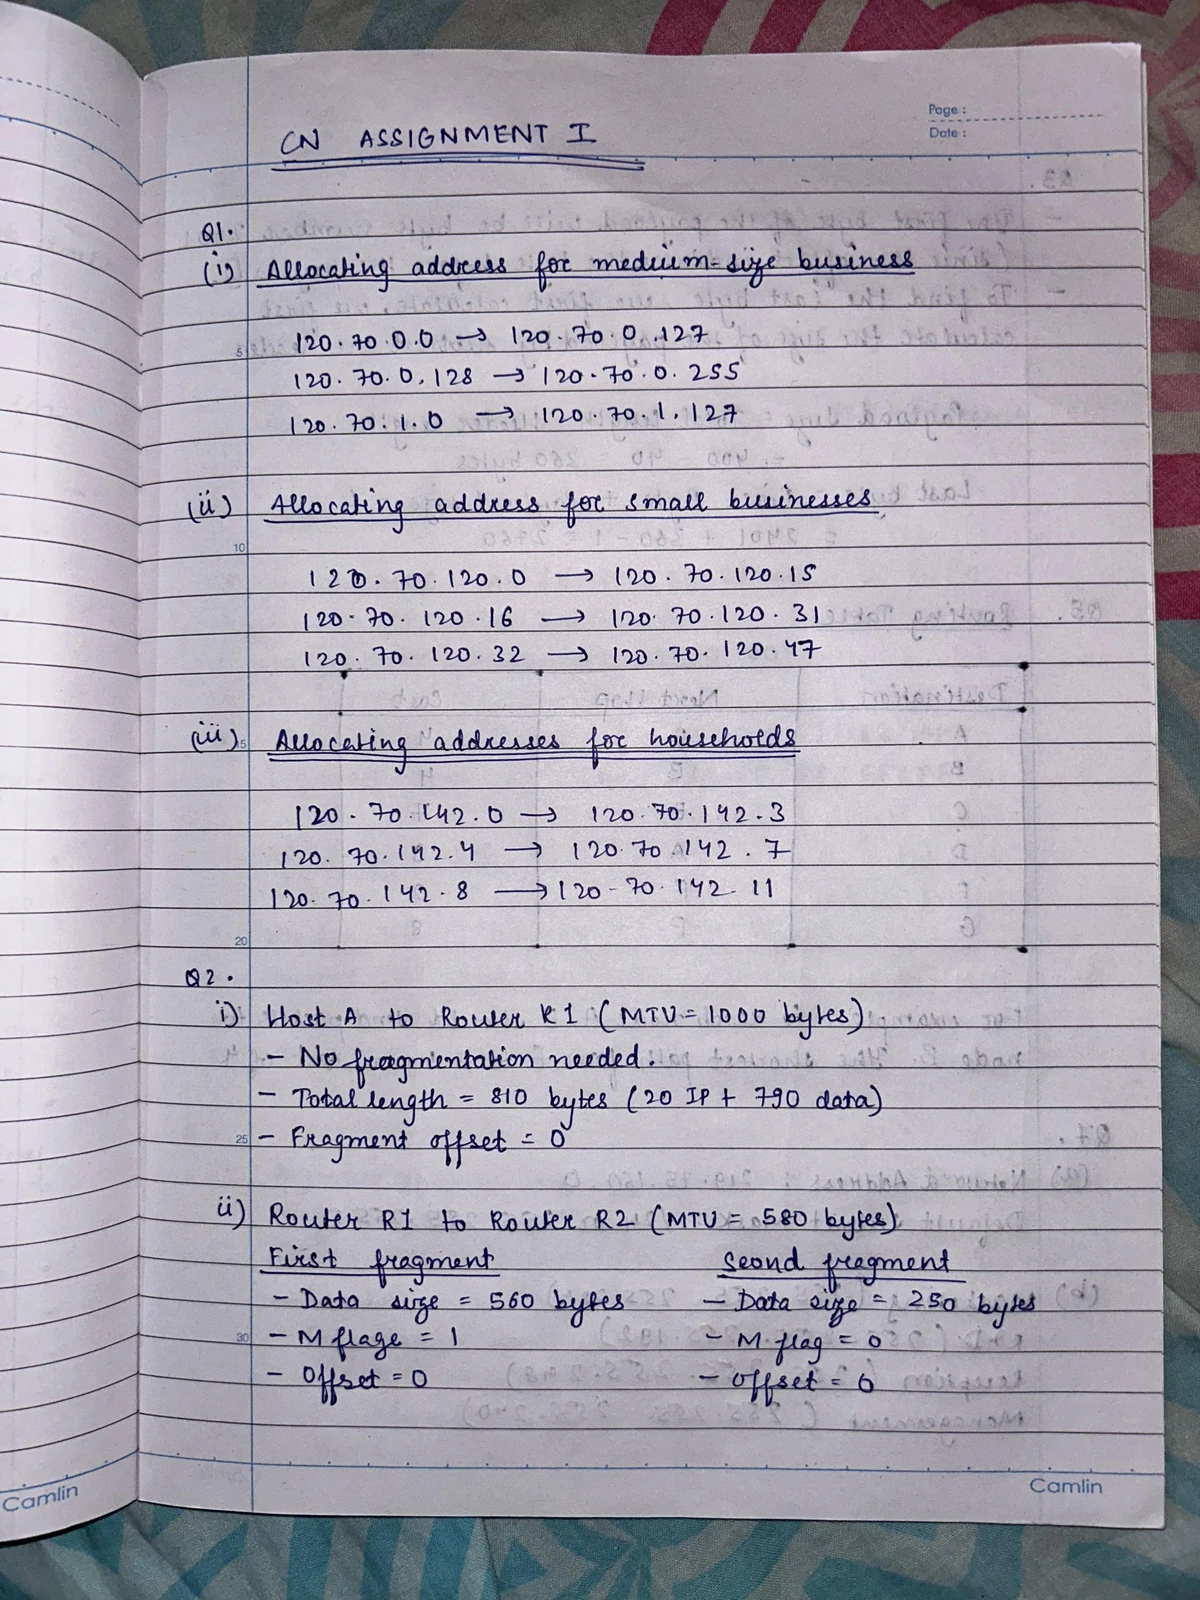 Page :
Date :
CN ASSIGNMENT I
Q1.
(i) Allocating address for medium-size business
120.70.0.0 → 120.70.0.127
5
120.70.0.128 → 120.70.0.255
120.70.1.0 → 120.70.1.127
(ii) Allocating address for small businesses
10
120.70.120.0 → 120.70.120.15
120.70.120.16 → 120.70.120.31
120.70.120.32 → 120.70.120.47
(iii) Allocating addresses for households
120.70.142.0 → 120.70.142.3
120.70.142.4 → 120.70.142.7
120.70.142.8 → 120-70.142.11
20
Q2.
i) Host A to Router R1 (MTU = 1000 bytes)
- No fragmentation needed.
- Total length = 810 bytes (20 IP + 790 data)
25 - Fragment offset = 0
ii) Router R1 to Router R2 (MTU = 580 bytes)
First fragment Seond fragment
- Data size = 560 bytes - Data size = 250 bytes
30 - M flage = 1 - M flag = 0
- Offset = 0 - Offset = 0
Camlin
Camlin